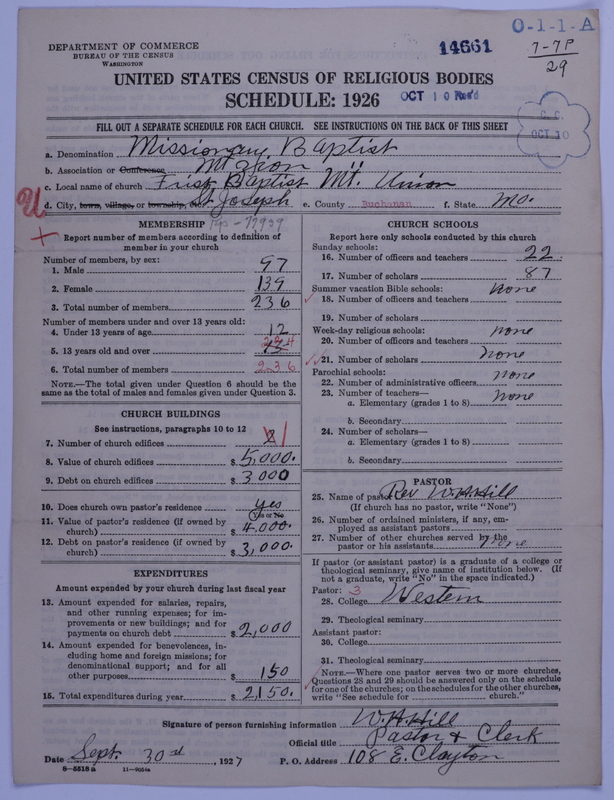 O-1-1-A
DEPARTMENT OF COMMERCE
BUREAU OF THE CENSUS
WASHINGTON
14661
7-7P
29
UNITED STATES CENSUS OF RELIGIOUS BODIES
SCHEDULE: 1926
OCT 10 Rec'd
FILL OUT A SEPARATE SCHEDULE FOR EACH CHURCH. SEE INSTRUCTIONS ON THE BACK OF THIS SHEET
OCT 10
a. Denomination Missionary Baptist
b. Association or Conference Mt Zion "
c. Local name of church First Baptist Mt. Union
d. City, town, village, or township, etc. St Joseph e. County Buchanan f. State Mo.
MEMBERSHIP
Report number of members according to definition of
member in your church
Number of members, by sex:
1. Male 97
2. Female 139
3. Total number of members 236
Number of members under and over 13 years old:
4. Under 13 years of age 12
5. 13 years old and over 224
6. Total number of members 236
NOTE.—The total given under Question 6 should be the
same as the total of males and females given under Question 3.
CHURCH BUILDINGS
See instructions, paragraphs 10 to 12
7. Number of church edifices 1
8. Value of church edifices $ 5,000.
9. Debt on church edifices $ 3000
10. Does church own pastor's residence yes
Yes or No
11. Value of pastor's residence (if owned by
church) $ 4,000.
12. Debt on pastor's residence (if owned by
church) $ 3,000.
EXPENDITURES
Amount expended by your church during last fiscal year
13. Amount expended for salaries, repairs,
and other running expenses; for im-
provements or new buildings; and for
payments on church debt $ 2,000
14. Amount expended for benevolences, in-
cluding home and foreign missions; for
denominational support; and for all
other purposes $ 150
15. Total expenditures during year $ 2,150.
CHURCH SCHOOLS
Report here only schools conducted by this church
Sunday schools:
16. Number of officers and teachers 22
17. Number of scholars 87
Summer vacation Bible schools: None
18. Number of officers and teachers
19. Number of scholars
Week-day religious schools: none
20. Number of officers and teachers
21. Number of scholars none
Parochial schools: none
22. Number of administrative officers
23. Number of teachers— none
a. Elementary (grades 1 to 8)
b. Secondary
24. Number of scholars—
a. Elementary (grades 1 to 8)
b. Secondary
PASTOR
25. Name of pastor Rev W.A. Hill
(If church has no pastor, write "None")
26. Number of ordained ministers, if any, em-
ployed as assistant pastors
27. Number of other churches served by the
pastor or his assistants none
If pastor (or assistant pastor) is a graduate of a college or
theological seminary, give name of institution below. (If
not a graduate, write "No" in the space indicated.)
Pastor: 3
28. College Western
29. Theological seminary
Assistant pastor:
30. College
31. Theological seminary
NOTE.—Where one pastor serves two or more churches,
Questions 28 and 29 should be answered only on the schedule
for one of the churches; on the schedules for the other churches,
write "See schedule for church."
Signature of person furnishing information W.A. Hill
Official title Pastor & Clerk
Date Sept. 30th, 1927 P. O. Address 108 E. Clayton
8-5518 a